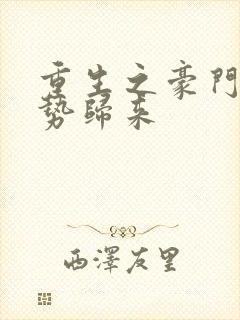 重生之豪門
勢歸来
西澤友里